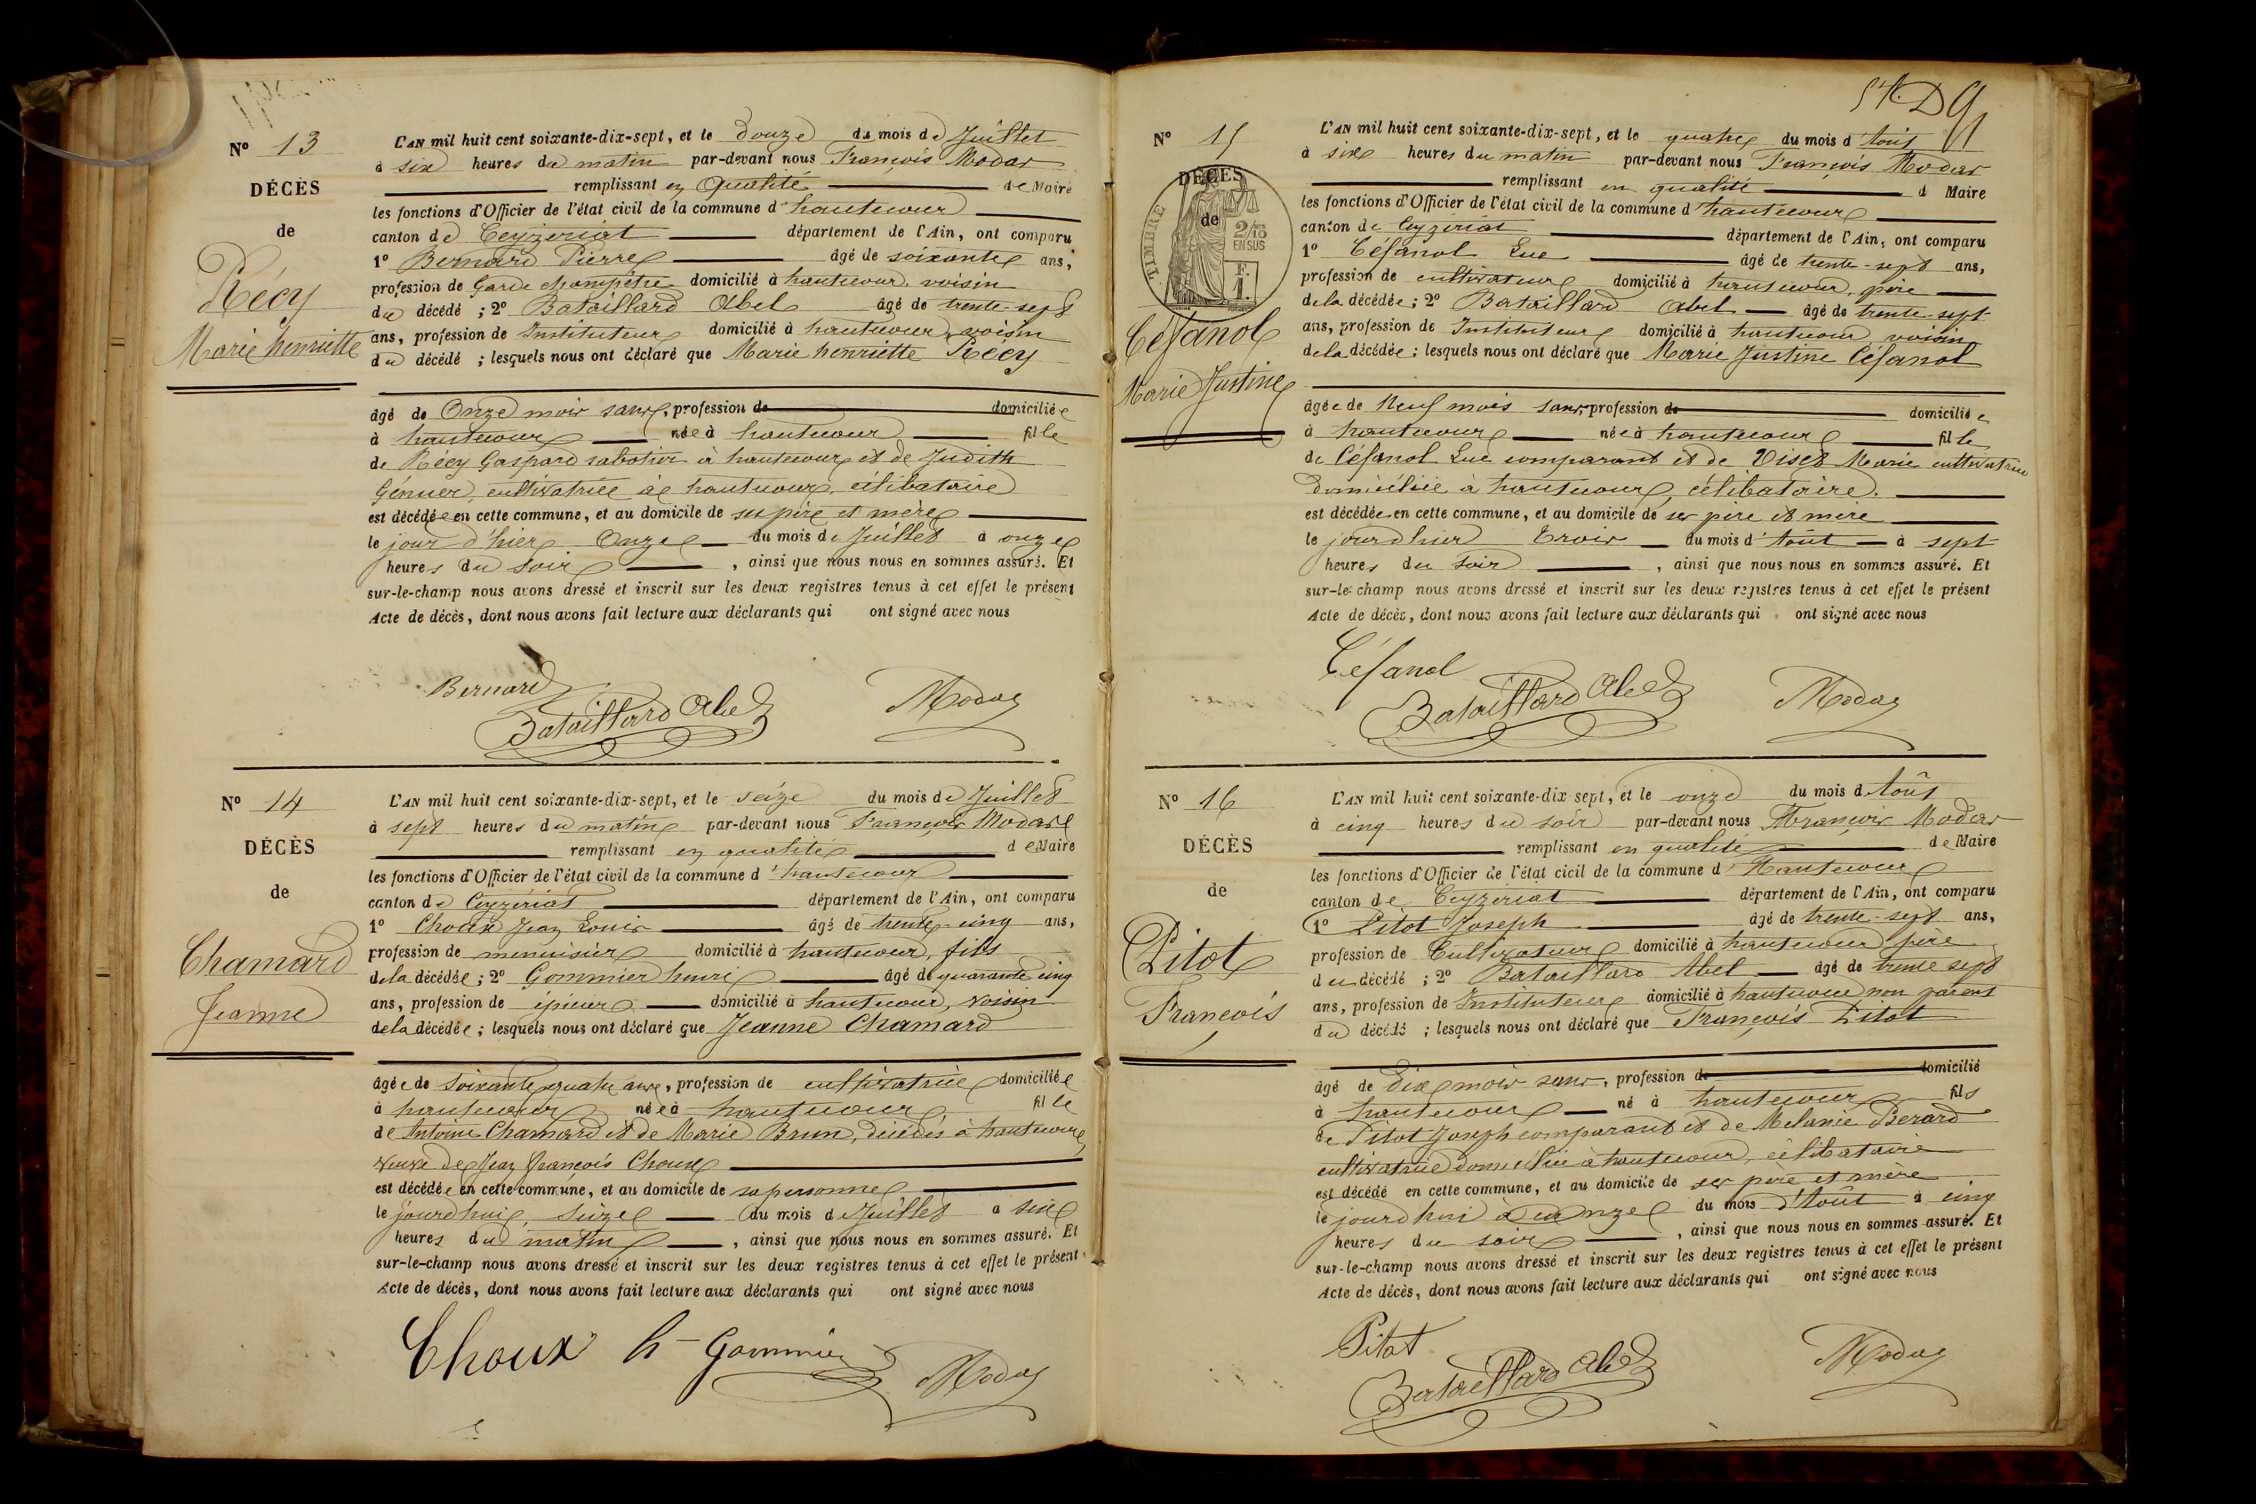 Nº 13
DÉCÈS
de
Récy
Marie henriette
L'AN mil huit cent soixante-dix-sept, et le douze du mois de Juillet
à six heures du matin par-devant nous François Modas
remplissant en qualité de Maire
les fonctions d'Officier de l'état civil de la commune d'hautecour
canton de Ceyzeriat département de l'Ain, ont comparu
1º Bernard Pierre âgé de soixante ans,
profession de Garde champêtre domicilié à hautecour voisin
du décédé ; 2º Bataillard Abel âgé de trente-sept
ans, profession de Instituteur domicilié à hautecour, voisin
du décédé ; lesquels nous ont déclaré que Marie henriette Récy
âgé de Onze mois sans, profession de domiciliée
à hautecour née à hautecour fille
de Récy Gaspard sabotier à hautecour et de Judith
cultivatrice à hautecour, célibataire
est décédée en cette commune, et au domicile de ses père et mère
le jour d'hier Onze du mois de Juillet à onze
heures du soir, ainsi que nous nous en sommes assuré. Et
sur-le-champ nous avons dressé et inscrit sur les deux registres tenus à cet effet le présent
Acte de décès, dont nous avons fait lecture aux déclarants qui ont signé avec nous
Bernard
Bataillard Abel
Modas
Nº 14
DÉCÈS
de
Chamard
Jeanne
L'AN mil huit cent soixante-dix-sept, et le seize du mois de Juillet
à sept heures du matin par-devant nous François Modas
remplissant en qualité de Maire
les fonctions d'Officier de l'état civil de la commune d'hautecour
canton de Ceyzériat département de l'Ain, ont comparu
1º Choux Jean Louis âgé de trente-cinq ans,
profession de menuisier domicilié à hautecour, fils
de la décédée ; 2º Gommier henri âgé de quarante cinq
ans, profession de épicier domicilié à hautecour, voisin
de la décédée ; lesquels nous ont déclaré que Jeanne Chamard
âgée de soixante quatre ans, profession de cultivatrice domiciliée
à hautecour née à hautecour fille
de Antoine Chamard et de Marie Brun, décédés à hautecour,
veuve de Jean François Choux
est décédée en cette commune, et au domicile de sa personne
le jourd'hui seize du mois de Juillet à six
heures du matin, ainsi que nous nous en sommes assuré. Et
sur-le-champ nous avons dressé et inscrit sur les deux registres tenus à cet effet le présent
Acte de décès, dont nous avons fait lecture aux déclarants qui ont signé avec nous
Choux h Gommier
Modas
Nº 15
DÉCÈS
de
TIMBRE
2/10
EN SUS
F.
1.
Céfanol
Marie Justine
L'AN mil huit cent soixante-dix-sept, et le quatre du mois d'Août
à six heures du matin par-devant nous François Modas
remplissant en qualité d Maire
les fonctions d'Officier de l'état civil de la commune d'hautecour
canton de Ceyzériat département de l'Ain, ont comparu
1º Céfanol Luc âgé de trente-sept ans,
profession de cultivateur domicilié à hautecour, père
de la décédée ; 2º Bataillard Abel âgé de trente-sept
ans, profession de Instituteur domicilié à hautecour, voisin
de la décédée ; lesquels nous ont déclaré que Marie Justine Céfanol
âgée de Neuf mois sans, profession de domiciliée
à hautecour née à hautecour fille
de Céfanol Luc comparant et de Marie cultivatrice
domiciliée à hautecour, célibataire.
est décédée en cette commune, et au domicile de ses père et mère
le jourd'hier Trois du mois d'Août à sept
heures du soir, ainsi que nous nous en sommes assuré. Et
sur-le-champ nous avons dressé et inscrit sur les deux registres tenus à cet effet le présent
Acte de décès, dont nous avons fait lecture aux déclarants qui ont signé avec nous
Céfanol
Bataillard Abel
Modas
Nº 16
DÉCÈS
de
Pitot
François
L'AN mil huit cent soixante-dix-sept, et le onze du mois d'Août
à cinq heures du soir par-devant nous François Modas
remplissant en qualité de Maire
les fonctions d'Officier de l'état civil de la commune d'Hautecour
canton de Ceyzériat département de l'Ain, ont comparu
1º Pitot Joseph âgé de trente-sept ans,
profession de Cultivateur domicilié à hautecour père
du décédé ; 2º Bataillard Abel âgé de trente sept
ans, profession de Instituteur domicilié à hautecour non parent
du décédé ; lesquels nous ont déclaré que François Pitot
âgé de Dix mois sans, profession de domicilié
à hautecour né à hautecour fils
de Pitot Joseph comparant et de Melanie Berard
cultivatrice domiciliée à hautecour, célibataire
est décédé en cette commune, et au domicile de ses père et mère
le jourd'hui Onze du mois d'Août à cinq
heures du soir, ainsi que nous nous en sommes assuré. Et
sur-le-champ nous avons dressé et inscrit sur les deux registres tenus à cet effet le présent
Acte de décès, dont nous avons fait lecture aux déclarants qui ont signé avec nous
Pitot
Bataillard Abel
Modas